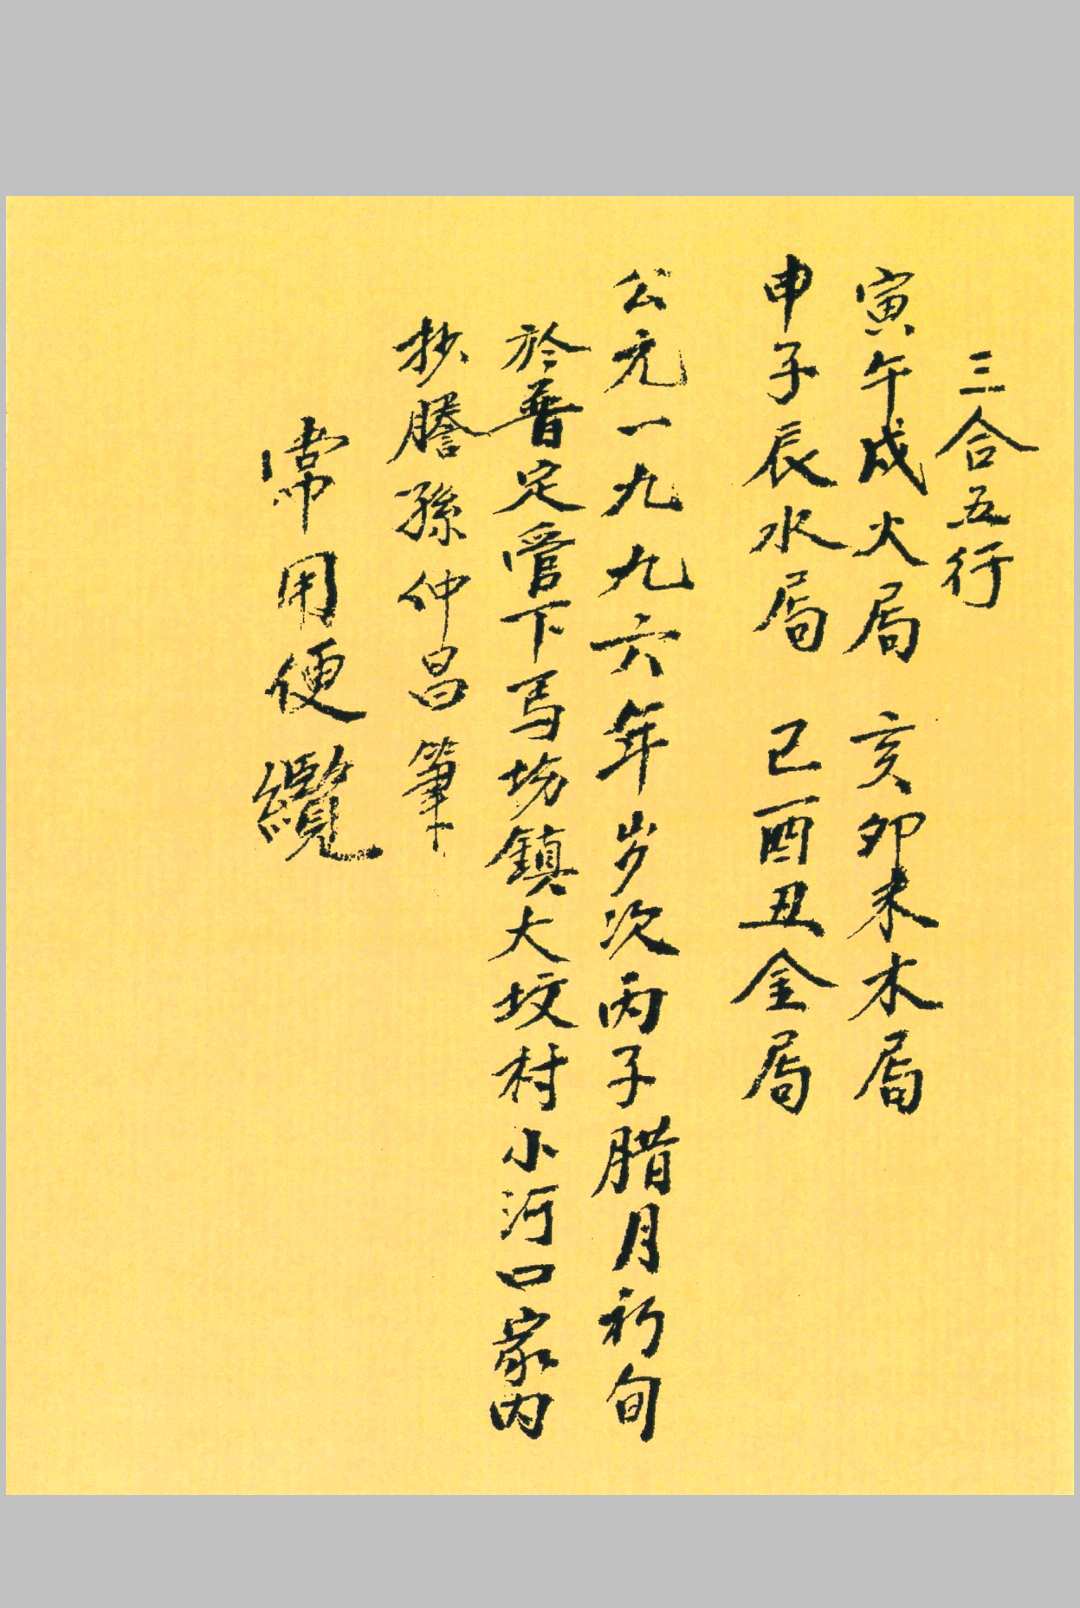 三合五行
寅午戌火局 亥卯未木局
申子辰水局 己酉丑金局
公元一九九六年岁次丙子腊月初旬
於普定管下马坊鎮大坟村小河口家内
抄謄孫仲昌筆
常用便纜